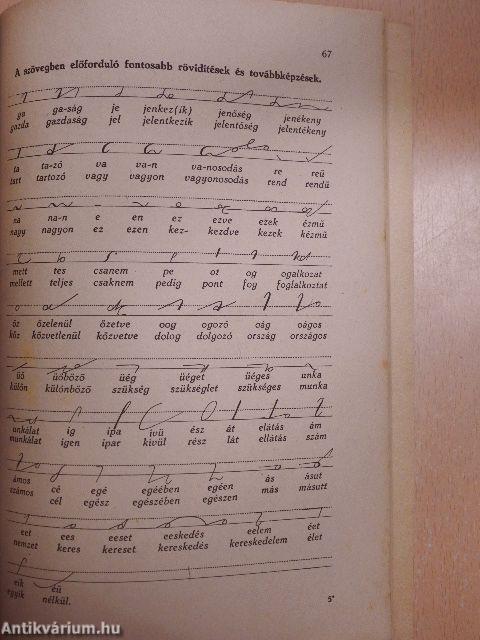 67
A szövegben előforduló fontosabb rövidítések és továbbképzések.
ga ga-ság je jenkez(ik) jenőség jenékeny
gazda gazdaság jel jelentkezik jelentőség jelentékeny
ta ta-zó va va-n va-nosodás re reü
tart tartozó vagy vagyon vagyonosodás rend rendü
na na-n e en ez ezve ezek ézmü
nagy nagyon ez ezen kez- kezdve kezek kézmü
mett tes csanem pe ot og ogalkozat
mellett teljes csaknem pedig pont fog foglalkoztat
öz özelenül özetve oog ogozó oág oágos
köz közvetlenül közvetve dolog dolgozó ország országos
üö üöböző üég üéget üéges unka
külön különböző szükség szükséglet szükséges munka
unkálat ig ipa ivü ész át elátás ám
munkálat igen ipar kivül rész lát ellátás szám
ámos cé egé egéében egéen ás ásut
számos cél egész egészében egészen más másutt
eet ees eeset eeskedés eeelem éet
nemzet keres kereset kereskedés kereskedelem élet
eik éü
egyik nélkül.
5*
Antikvárium.hu